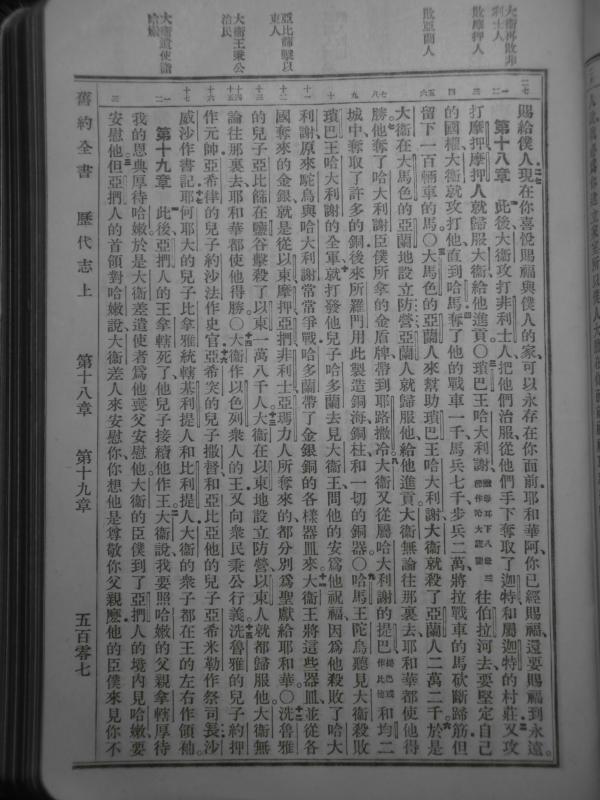 大衛再敗非利士人
敗摩押人
敗亞蘭人
亞比篩擊以東人
大衛王秉公治民
大衛遣使慰哈嫩
賜給僕人現在你喜悅賜福與僕人的家可以永存在你面前耶和華阿你已經賜福還要賜福到永遠
第十八章 此後大衛攻打非利士人把他們治服從他們手下奪取了迦特和屬迦特的村莊又攻
打摩押摩押人就歸服大衛給他進貢〇瑣巴王哈大利謝往伯拉河去要堅定自己
的國權大衛就攻打他直到哈馬奪了他的戰車一千馬兵七千步兵二萬將拉戰車的馬砍斷蹄筋但
留下一百輛車的馬〇大馬色的亞蘭人來幫助瑣巴王哈大利謝大衛就殺了亞蘭人二萬二千於是
大衛在大馬色的亞蘭地設立防營亞蘭人就歸服他給他進貢大衛無論往那裏去耶和華都使他得
勝他奪了哈大利謝臣僕所拿的金盾牌帶到耶路撒冷大衛又從屬哈大利謝的提巴和均二
城中奪取了許多的銅後來所羅門用此製造銅海銅柱和一切的銅器〇哈馬王陀烏聽見大衛殺敗
瑣巴王哈大利謝的全軍就打發他兒子哈多蘭去見大衛王問他的安爲他祝福因爲他殺敗了哈大
利謝原來陀烏與哈大利謝常常爭戰哈多蘭帶了金銀銅的各樣器皿來大衛王將這些器皿並從各
國奪來的金銀就是從以東摩押亞捫非利士亞瑪力人所奪來的都分別爲聖獻給耶和華〇洗魯雅
的兒子亞比篩在鹽谷擊殺了以東一萬八千人大衛在以東地設立防營以東人就都歸服他大衛無
論往那裏去耶和華都使他得勝〇大衛作以色列衆人的王又向衆民秉公行義洗魯雅的兒子約押
作元帥亞希律的兒子約沙法作史官亞希突的兒子撒督和亞比亞他的兒子亞希米勒作祭司
威沙作書記耶何耶大的兒子比拿雅統轄基利提人和比利提人大衛的衆子都在王的左右作領袖
第十九章 此後亞捫人的王拿轄死了他兒子接續他作王大衛說我要照哈嫩的父親拿轄厚待
我的恩典厚待哈嫩於是大衛差遣使者爲他喪父安慰他大衛的臣僕到了亞捫人的境內見哈嫩要
安慰他但亞捫人的首領對哈嫩說大衛差人來安慰你你想他是尊敬你父親麼他的臣僕來見你不
舊約全書 歷代志上 第十八章 第十九章 五百零七